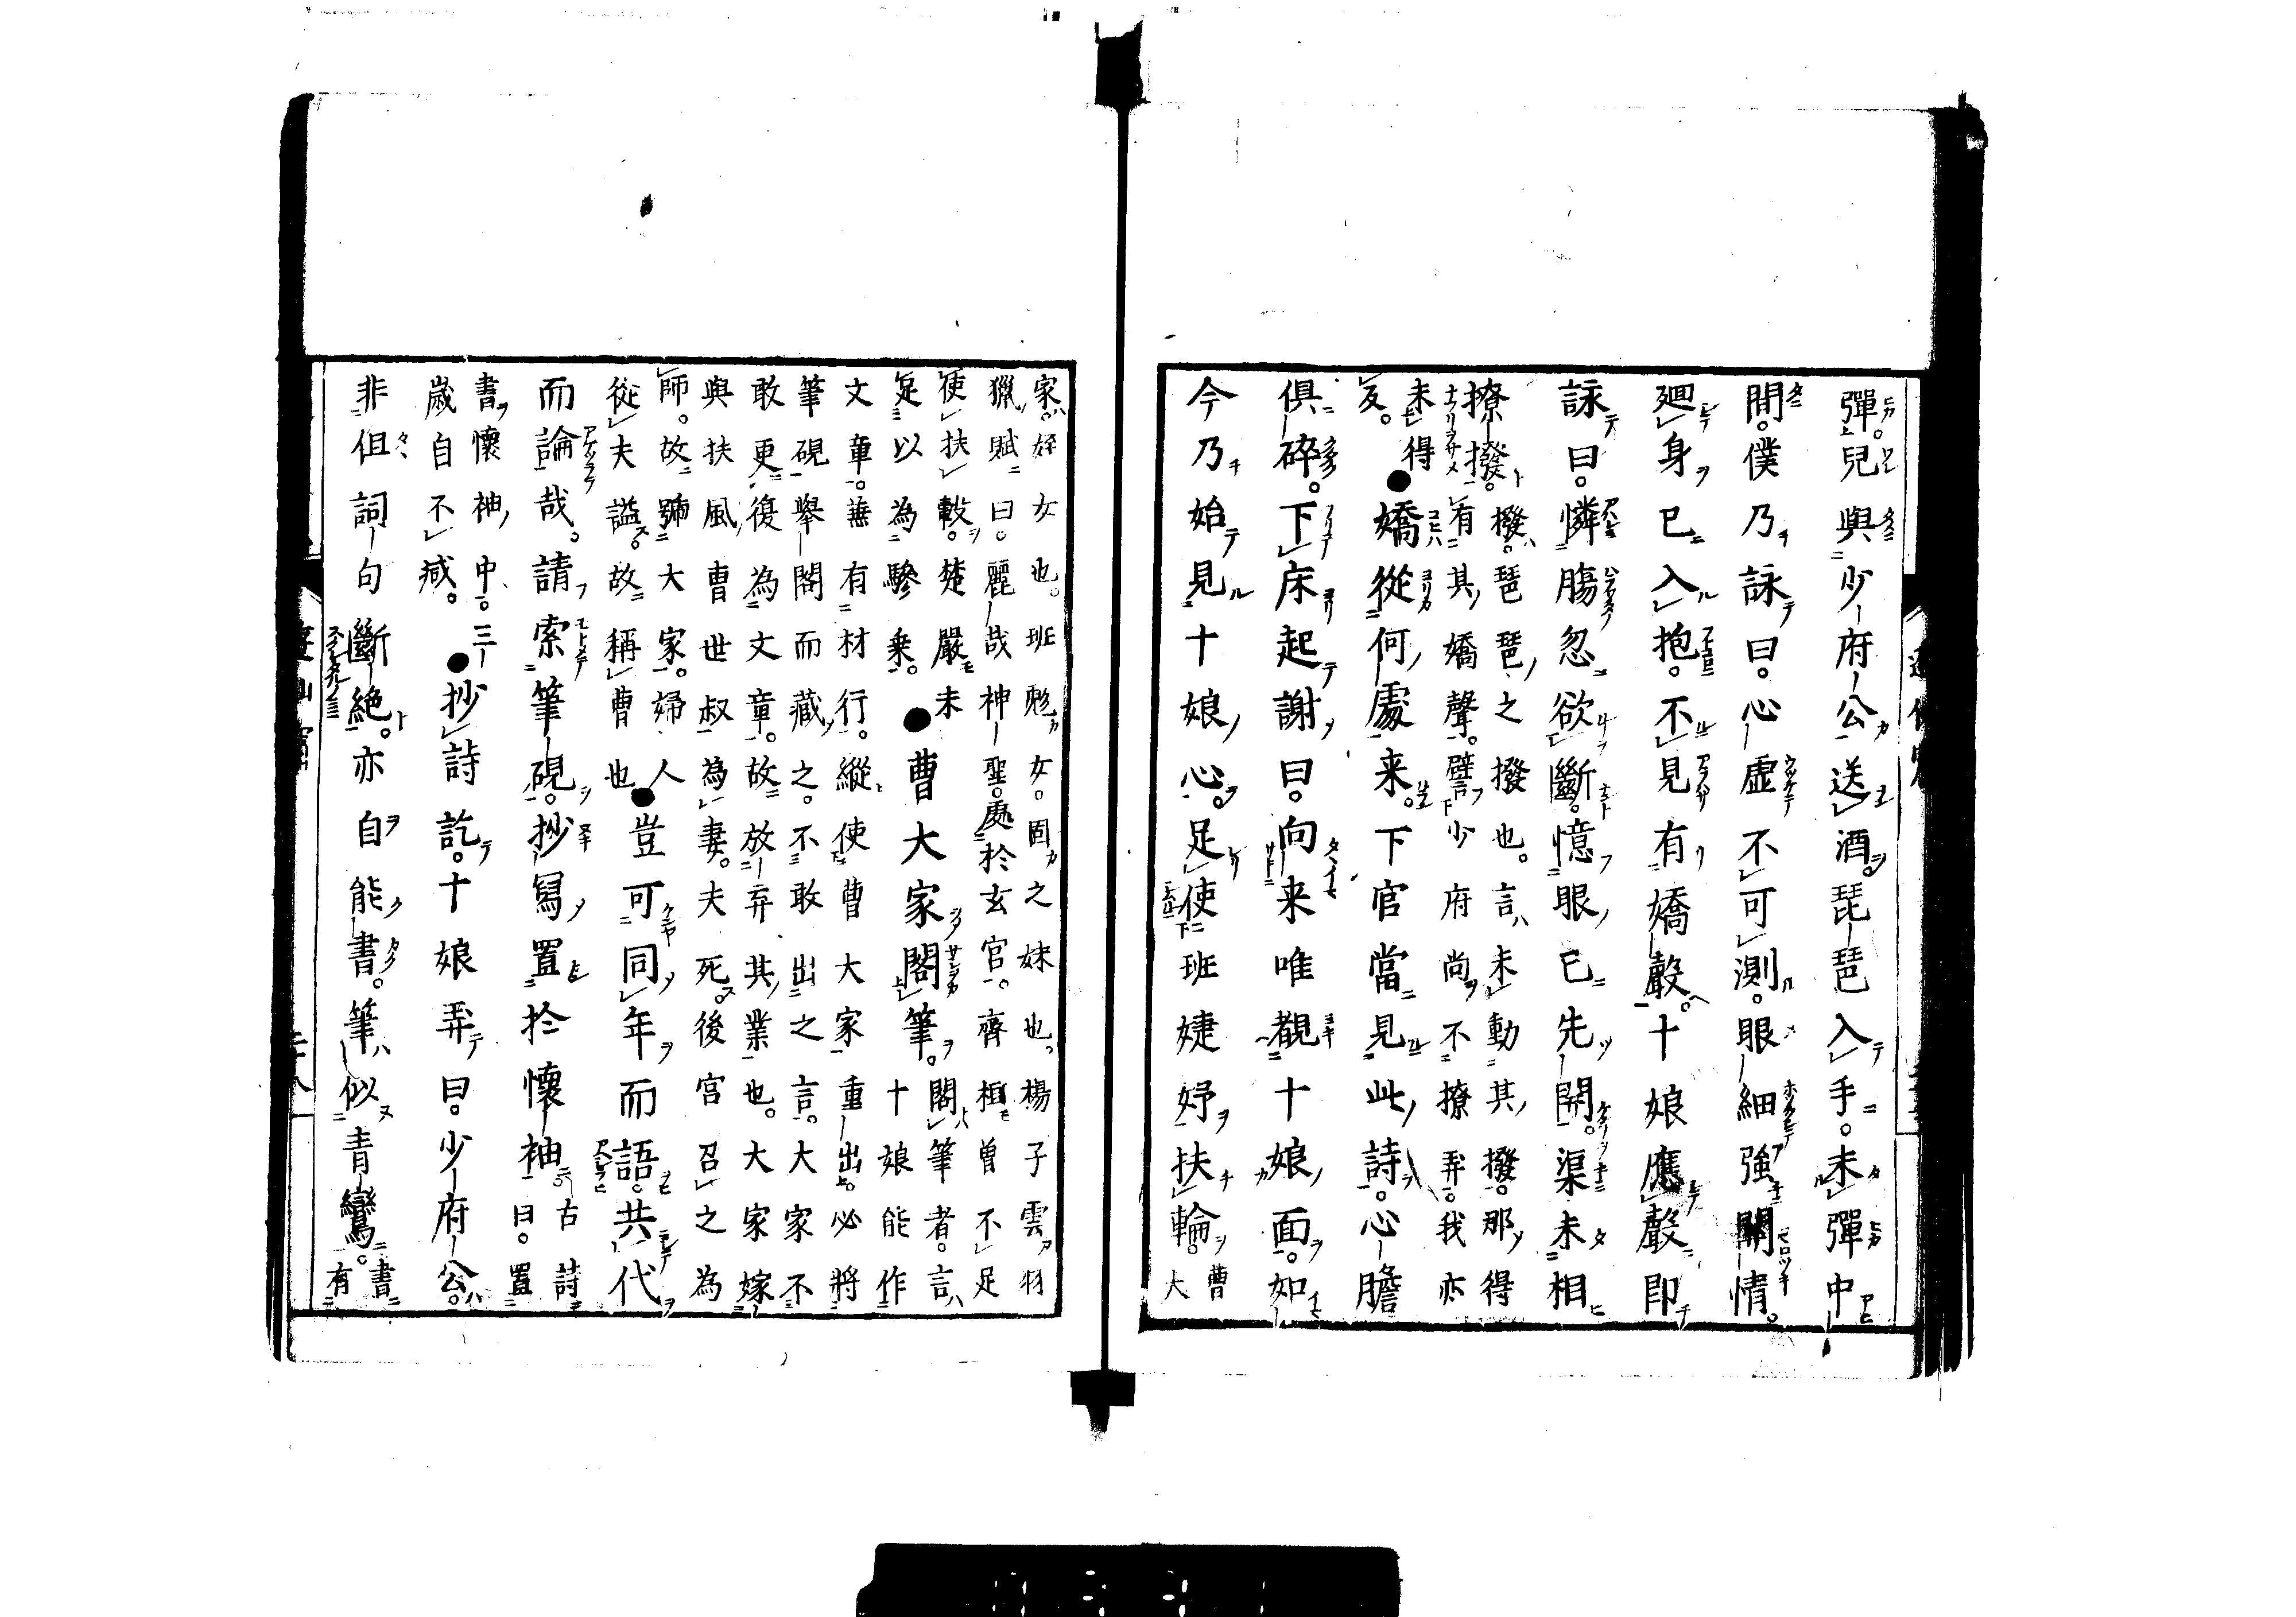 彈兒與少府公送酒琵琶入手未彈中
間僕乃詠曰心虛不可測眼細強關情
廻身已入抱不見有嬌聲十娘應聲即
詠曰憐膓忽欲斷憶眼已先開渠未相
撩撥撥琵琶之撥也言未動其撥那得
未得有其嬌聲譬少府尚不撩弄我亦
反嬌從何處来下官當見此詩心膽
俱碎下床起謝曰向来唯覩十娘面如
今乃始見十娘心足使班婕妤扶輪曹
大
家婬女也班彪女固之妹也楊子雲羽
獵賦曰麗哉神聖處於玄宮齊桓曽不足
使扶轂楚嚴未
足以為驂乗曹大家閣筆閣筆者言
十娘能作
文章兼有材行縱使曹大家重出必將
筆硯舉閣而藏之不敢出之言大家不
敢更復為文章故放弃其業也大家嫁
與扶風曹世叔為妻夫死後宮召之為
師故號大家婦人
從夫謚故稱曹也豈可同年而語共代
而論哉請索筆硯抄寫置於懷袖古詩
曰置
書懷袖中三
歲自不滅抄詩訖十娘弄曰少府公
非但詞句斷絶亦自能書筆似青鸞書
有